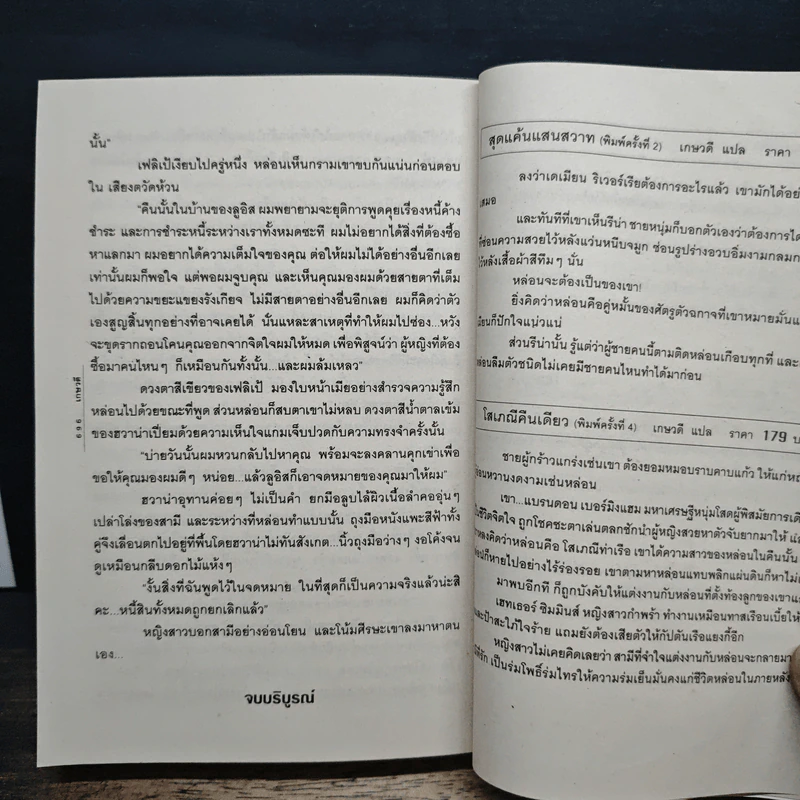 นั้น"
เฟลิเป้เงียบไปครู่หนึ่ง หล่อนเห็นกรามเขาขบกันแน่นก่อนตอบ
ใน เสียงตวัดห้วน
"คืนนั้นในบ้านของลูอิส ผมพยายามจะยุติการพูดคุยเรื่องหนี้ค้าง
ชำระ และการชำระหนี้ระหว่างเราทั้งหมดซะที ผมไม่อยากได้สิ่งที่ต้องซื้อ
หาแลกมา ผมอยากได้ความเต็มใจของคุณ ต่อให้ผมไม่ได้อย่างอื่นอีกเลย
เท่านั้นผมก็พอใจ แต่พอผมจูบคุณ และเห็นคุณมองผมด้วยสายตาที่เต็ม
ไปด้วยความขยะแขยงรังเกียจ ไม่มีสายตาอย่างอื่นอีกเลย ผมก็คิดว่าตัว
เองสูญสิ้นทุกอย่างที่อาจเคยได้ นั่นแหละสาเหตุที่ทำให้ผมไปซ่อง...หวัง
จะขุดรากถอนโคนคุณออกจากจิตใจผมให้หมด เพื่อพิสูจน์ว่า ผู้หญิงที่ต้อง
ซื้อมาคนไหนๆ ก็เหมือนกันทั้งนั้น...และผมล้มเหลว"
ดวงตาสีเขียวของเฟลิเป้ มองใบหน้าเมียอย่างสำรวจความรู้สึก
หล่อนไปด้วยขณะที่พูด ส่วนหล่อนก็สบตาเขาไม่หลบ ดวงตาสีน้ำตาลเข้ม
ของฮวาน่าเปี่ยมด้วยความเห็นใจแกมเจ็บปวดกับความทรงจำครั้งนั้น
"บ่ายวันนั้นผมหวนกลับไปหาคุณ พร้อมจะลงคลานคุกเข่าเพื่อ
ขอให้คุณมองผมดีๆ หน่อย...แล้วลูอิสก็เอาจดหมายของคุณมาให้ผม"
ฮวาน่าอุทานค่อยๆ ไม่เป็นคำ ยกมือลูบไล้ผิวเนื้อลำคออุ่นๆ
เปล่าโล่งของสามี และระหว่างที่หล่อนทำแบบนั้น ถุงมือหนังแพะสีฟ้าทั้ง
คู่จึงเลื่อนตกไปอยู่ที่พื้นโดยฮวาน่าไม่ทันสังเกต...นิ้วถุงมือว่างๆ งอโค้งจน
ดูเหมือนกลีบดอกไม้แห้งๆ
"งั้นสิ่งที่ฉันพูดไว้ในจดหมาย ในที่สุดก็เป็นความจริงแล้วน่ะสิ
คะ...หนี้สินทั้งหมดถูกยกเลิกแล้ว"
หญิงสาวบอกสามีอย่างอ่อนโยน และโน้มศีรษะเขาลงมาหาตน
เอง...
จบบริบูรณ์
696 เกษวดี
สุดแค้นแสนสวาท (พิมพ์ครั้งที่ 2) เกษวดี แปล ราคา
ลงว่าเดเมียน ริเวอร์เรียต้องการอะไรแล้ว เขามักได้อย่า
เสมอ
และทันทีที่เขาเห็นรีน่า ชายหนุ่มก็บอกตัวเองว่าต้องการได้
ที่ซ่อนความสวยไว้หลังแว่นหนีบจมูก ซ่อนรูปร่างอวบอิ่มงามกลมก
ไว้หลังเสื้อผ้าสีทึมๆ นั่น
หล่อนจะต้องเป็นของเขา!
ยิ่งคิดว่าหล่อนคือคู่หมั้นของศัตรูตัวฉกาจที่เขาหมายมั่นแ
เมียนก็ปักใจแน่วแน่
ส่วนรีน่านั้น รู้แต่ว่าผู้ชายคนนี้ตามติดหล่อนเกือบทุกที่ และ
หล่อนลืมตัวชนิดไม่เคยมีชายคนไหนทำได้มาก่อน
โสเภณีคืนเดียว (พิมพ์ครั้งที่ 4) เกษวดี แปล ราคา 179 บ
ชายผู้กร้าวแกร่งเช่นเขา ต้องยอมหมอบราบคาบแก้ว ให้แก่หญ
อ่อนหวานงดงามเช่นหล่อน
เขา...แบรนดอน เบอร์มิงแฮม มหาเศรษฐีหนุ่มโสดผู้พิสมัยการเดิ
ชีวิตจิตใจ ถูกโชคชะตาเล่นตลกชักนำผู้หญิงสวยหาตัวจับยากมาให้ แล
หลงคิดว่าหล่อนคือ โสเภณีท่าเรือ เขาได้ความสาวของหล่อนในคืนนั้น
อนก็หายไปอย่างไร้ร่องรอย เขาตามหาหล่อนแทบพลิกแผ่นดินก็หาไม่
มาพบอีกที ก็ถูกบังคับให้แต่งงานกับหล่อนที่ตั้งท้องลูกของเขาแ
เฮทเธอร์ ซิมมินส์ หญิงสาวกำพร้า ทำงานเหมือนทาสเรือนเบี้ยให้
และป้าสะใภ้ใจร้าย แถมยังต้องเสียตัวให้กัปตันเรือแยงกี้อีก
หญิงสาวไม่เคยคิดเลยว่า สามีที่จำใจแต่งงานกับหล่อนจะกลายมา
ที่รัก เป็นร่มโพธิ์ร่มไทรให้ความร่มเย็นมั่นคงแก่ชีวิตหล่อนในภายหลัง